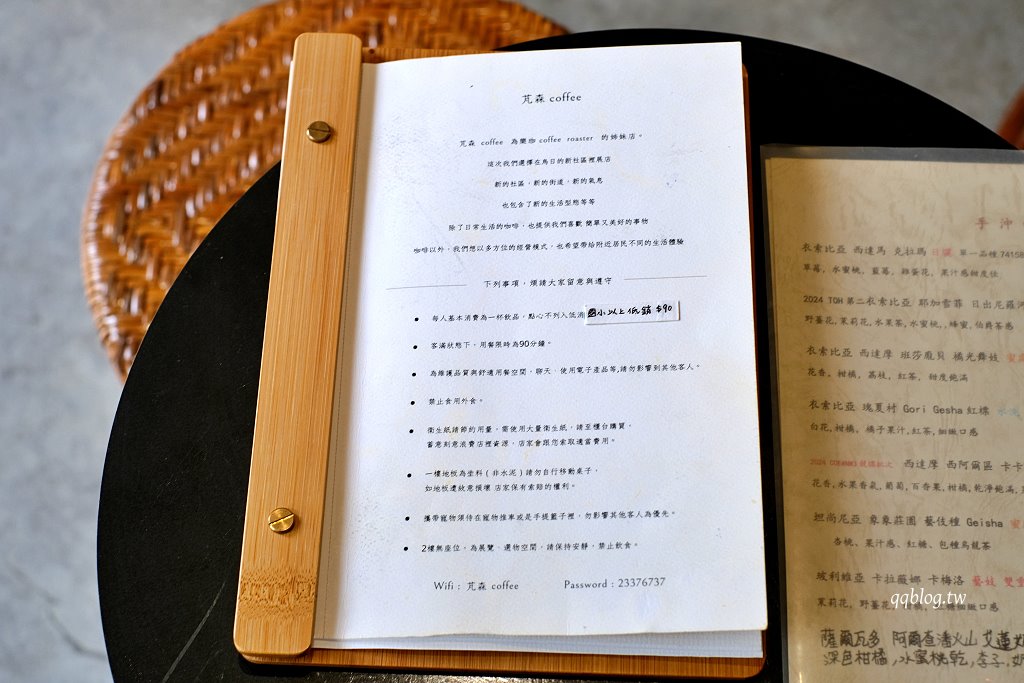 芃森 coffee
芃森 coffee 為樂咖 coffee roaster 的姊妹店。
這次我們選擇在烏日的新社區裡展店
新的社區，新的街道，新的氣息
也包含了新的生活型態等等
除了日常生活的咖啡，也提供我們喜歡 簡單又美好的事物
咖啡以外，我們想以多方位的經營模式，也希望帶給附近居民不同的生活體驗
下列事項，煩請大家留意與遵守
• 每人基本消費為一杯飲品，點心不列入低消 國小以上低銷 $90
• 客滿狀態下，用餐限時為90分鐘。
• 為維護品質與舒適用餐空間，聊天、使用電子產品等，請勿影響到其他客人。
• 禁止食用外食。
• 衛生紙請節約用量，需使用大量衛生紙，請至櫃台購買，
蓄意刻意浪費店裡資源，店家會跟您索取適當費用。
• 一樓地板為塗料（非水泥）請勿自行移動桌子，
如地板遭故意損壞 店家保有索賠的權利。
• 攜帶寵物須待在寵物推車或是手提籃子裡，勿影響其他客人為優先。
• 2樓無座位，為展覽、選物空間，請保持安靜，禁止飲食。
Wifi : 芃森 coffee Password : 23376737
手沖
衣索比亞 西達馬 克拉瑪 日曬 單一品種 74158
草莓, 水蜜桃, 藍莓, 雞蛋花, 果汁感甜度佳
2024 TOH 第二衣索比亞 耶加雪菲 日出尼羅河
野薑花, 茉莉花, 水果茶, 水蜜桃, 蜂蜜, 伯爵茶感
衣索比亞 西達摩 班莎鹿貝 橘光舞妓
花香, 柑橘, 荔枝, 紅茶, 甜度飽滿
衣索比亞 瑰夏村 Gori Gesha 紅標
白花, 柑橘, 橘子果汁, 紅茶, 細緻口感
西達摩 西阿爾區 卡卡
花香, 水果香氣, 葡萄, 百香果, 柑橘, 乾淨飽滿,
坦尚尼亞 象象莊園 藝伎種 Geisha
杏桃、果汁感、紅糖、包種烏龍茶
玻利維亞 卡拉薇娜 卡梅洛 藝妓 雙重
茉莉花, 野薑花, 細緻口感
薩爾瓦多 阿爾查潘火山 艾蓮
深色柑橘, 水蜜桃乾, 李子, 奶
qqblog.tw